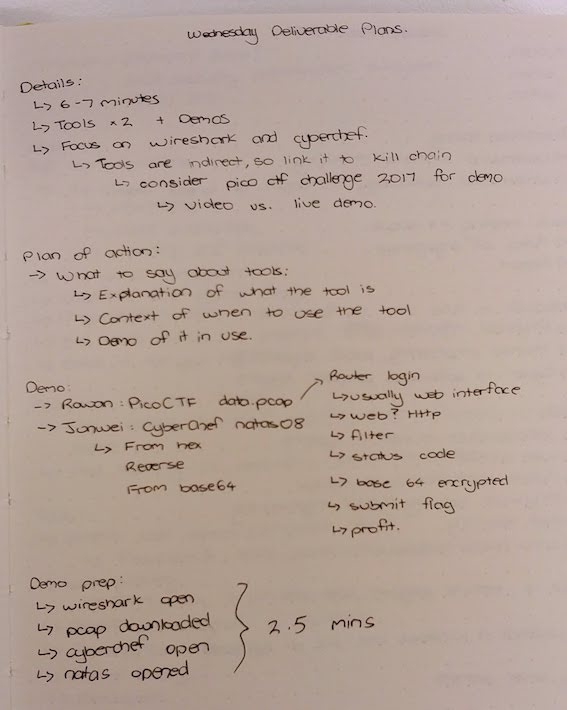 Wednesday Deliverable Plans.
Details:
↳ 6-7 minutes
↳ Tools x2 + Demos
↳ Focus on wireshark and cyberchef.
↳ Tools are indirect, so link it to kill chain
↳ consider pico ctf challenge 2017 for demo
↳ video vs. live demo.
Plan of action:
→ What to say about tools:
↳ Explanation of what the tool is
↳ Context of when to use the tool
↳ Demo of it in use.
Demo:
→ Rowan: PicoCTF data.pcap
→ Junwei: CyberChef natas08
↳ From hex
Reverse
From base64
Router login
↳ usually web interface
↳ web? Http
↳ filter
↳ status code
↳ base 64 encrypted
↳ submit flag
↳ profit.
Demo prep:
↳ wireshark open
↳ pcap downloaded
↳ cyberchef open
↳ natas opened
2.5 mins